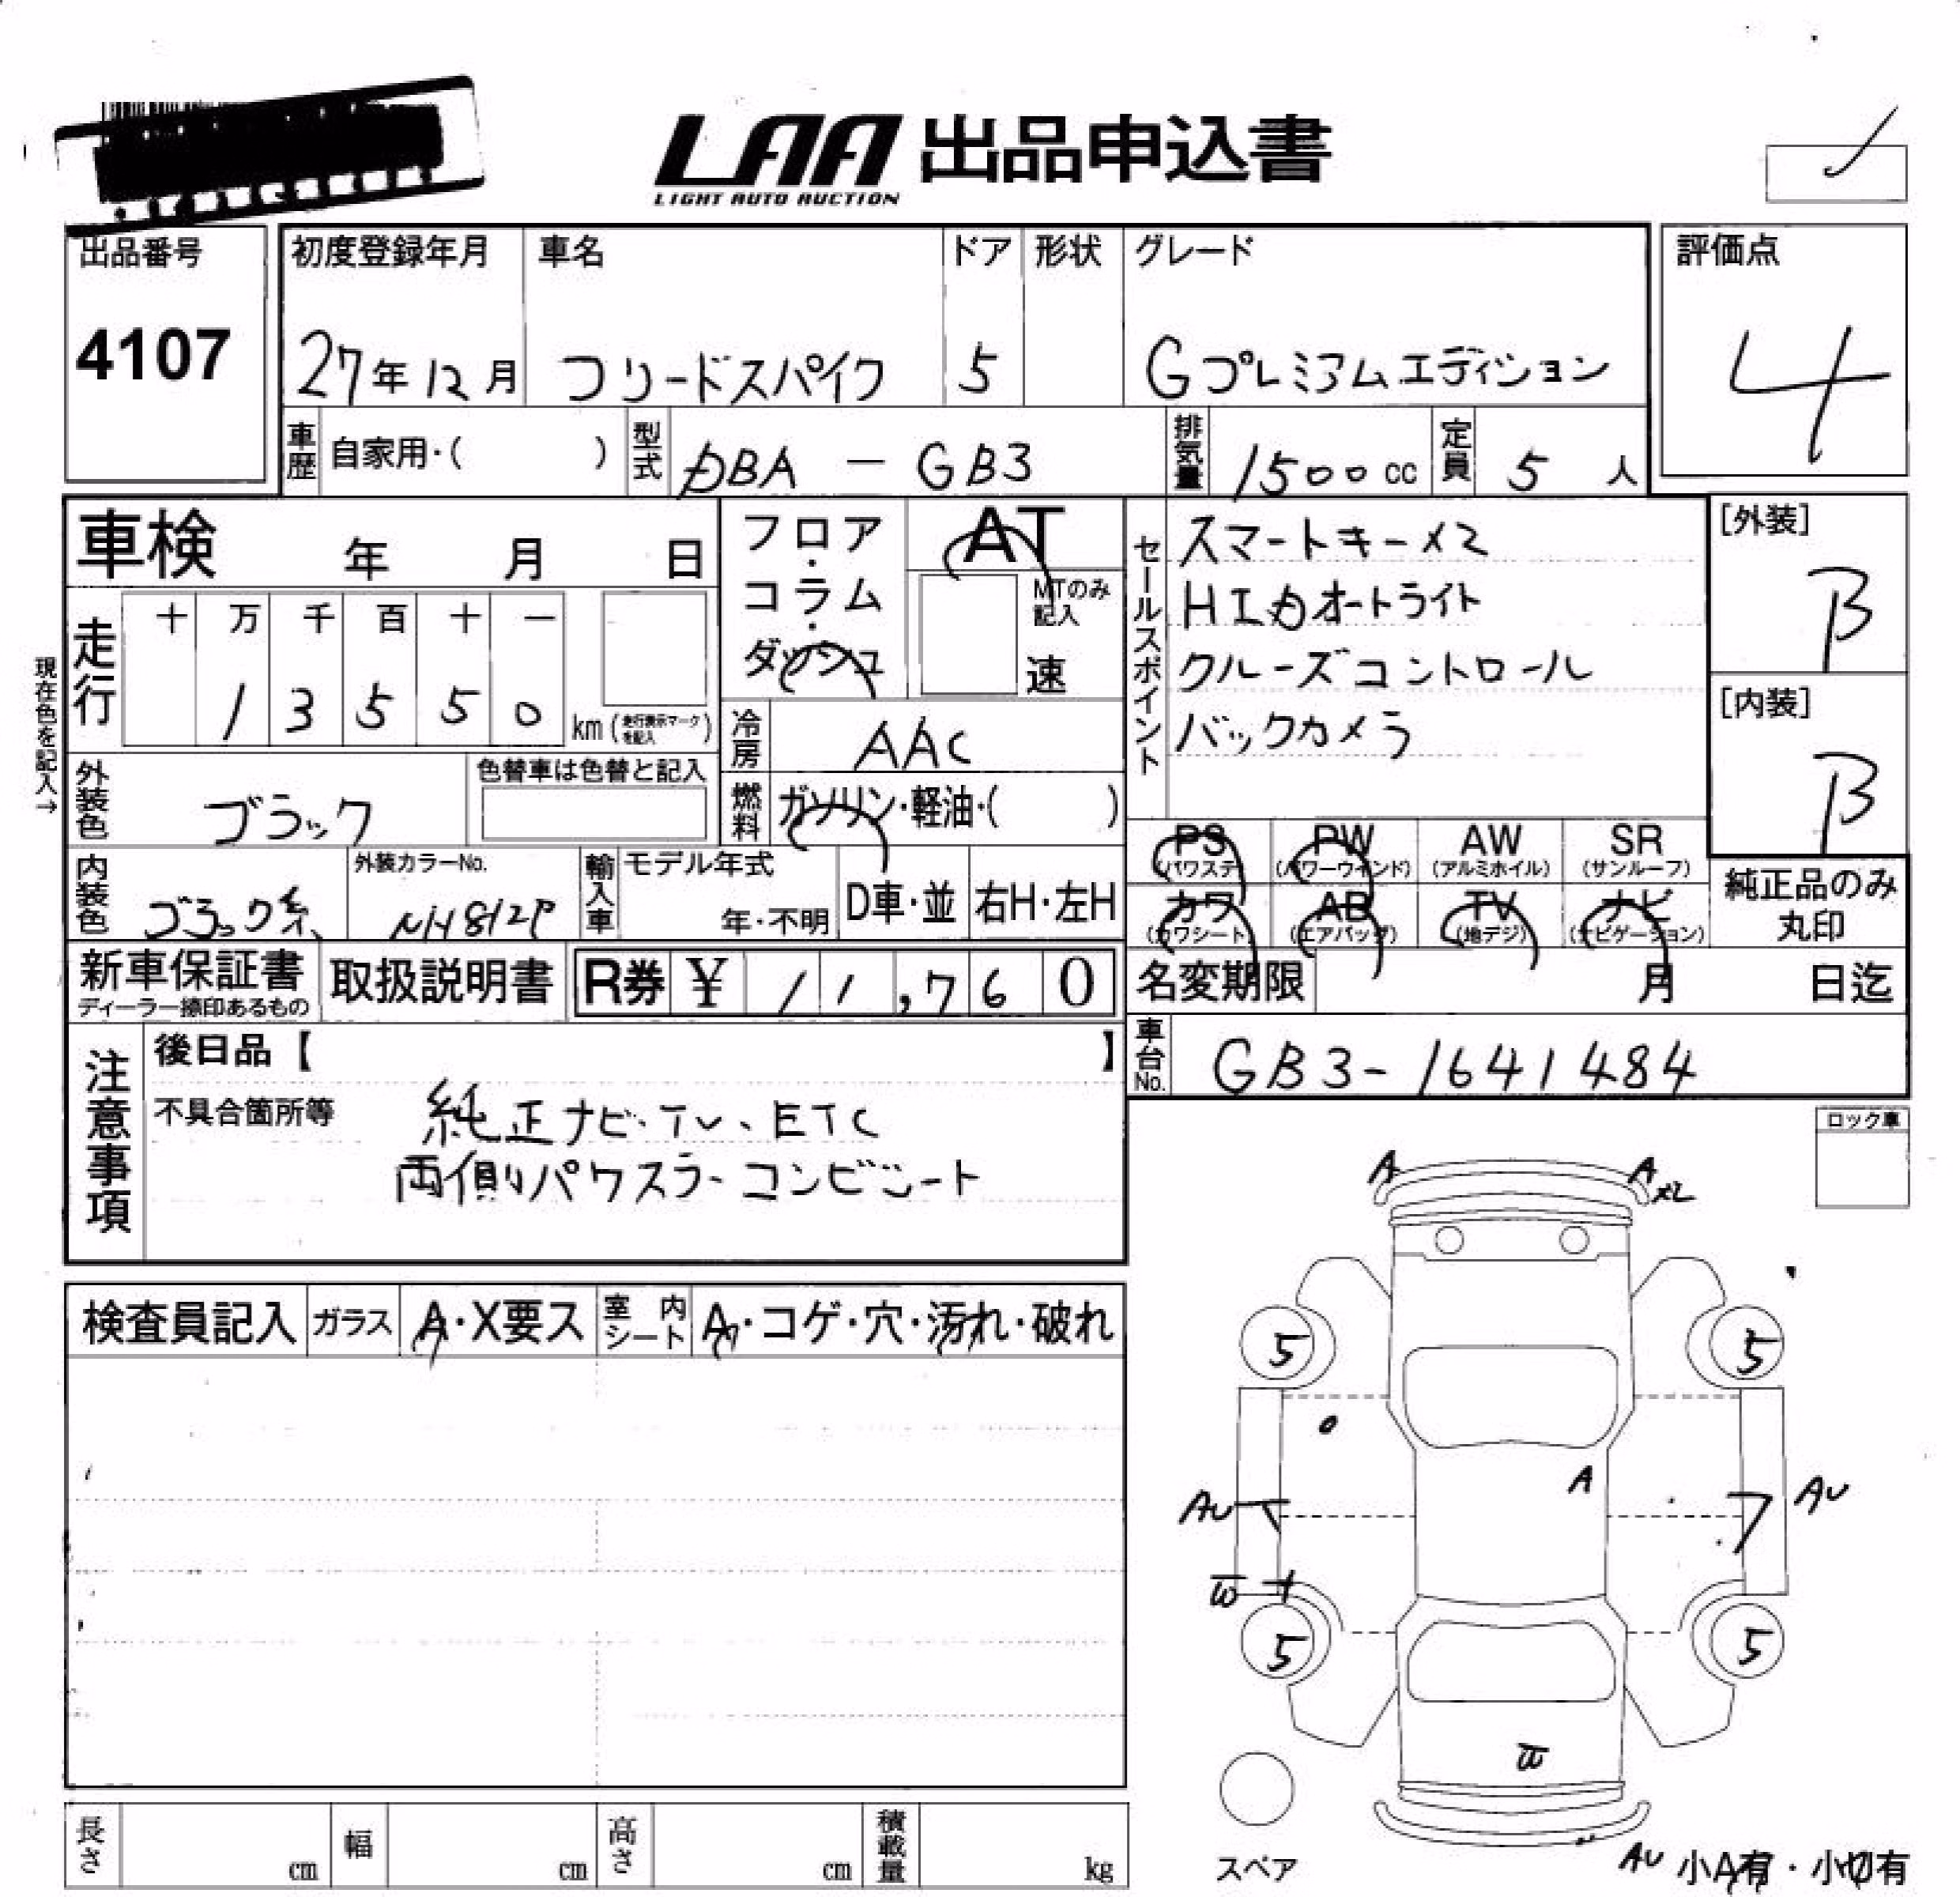 LAA 出品申込書
LIGHT AUTO AUCTION
出品番号
4107
初度登録年月
27年12月
車名
フリードスパイク
ドア
5
形状
グレード
Gプレミアムエディション
評価点
4
車歴 自家用・( )
型式 DBA - GB3
排気量 1500cc
定員 5人
車検 年 月 日
現在色を記入→
走行
十 万 千 百 十 一
1 3 5 5 0 km (走行表示マークを記入)
フロア・コラム・ダッシュ
AT
MTのみ記入
速
冷房 AAC
燃料 ガソリン・軽油・( )
セールスポイント
スマートキー×2
HIDオートライト
クルーズコントロール
バックカメラ
[外装]
B
[内装]
B
外装色 ブラック
色替車は色替と記入
内装色 ブラック系
外装カラーNo.
NH812P
輸入車 モデル年式
年・不明
D車・並
右H・左H
PS (パワステ)
PW (パワーウインド)
AW (アルミホイル)
SR (サンルーフ)
カワ (カワシート)
AB (エアバッグ)
TV (地デジ)
ナビ (ナビゲーション)
純正品のみ
丸印
新車保証書
ディーラー捺印あるもの
取扱説明書
R券 ¥ 11,760
名変期限 月 日迄
車台No. GB3-1641484
注意事項
後日品【 】
不具合箇所等
純正ナビ・TV、ETC
両側パワスラ・コンビシート
ロック車
検査員記入
ガラス A・X要ス
室内シート A・コゲ・穴・汚れ・破れ
A
A×2
5
5
A
AU
AU
W
5
5
W
スペア
AU 小A有・小U有
長さ cm
幅 cm
高さ cm
積載量 kg